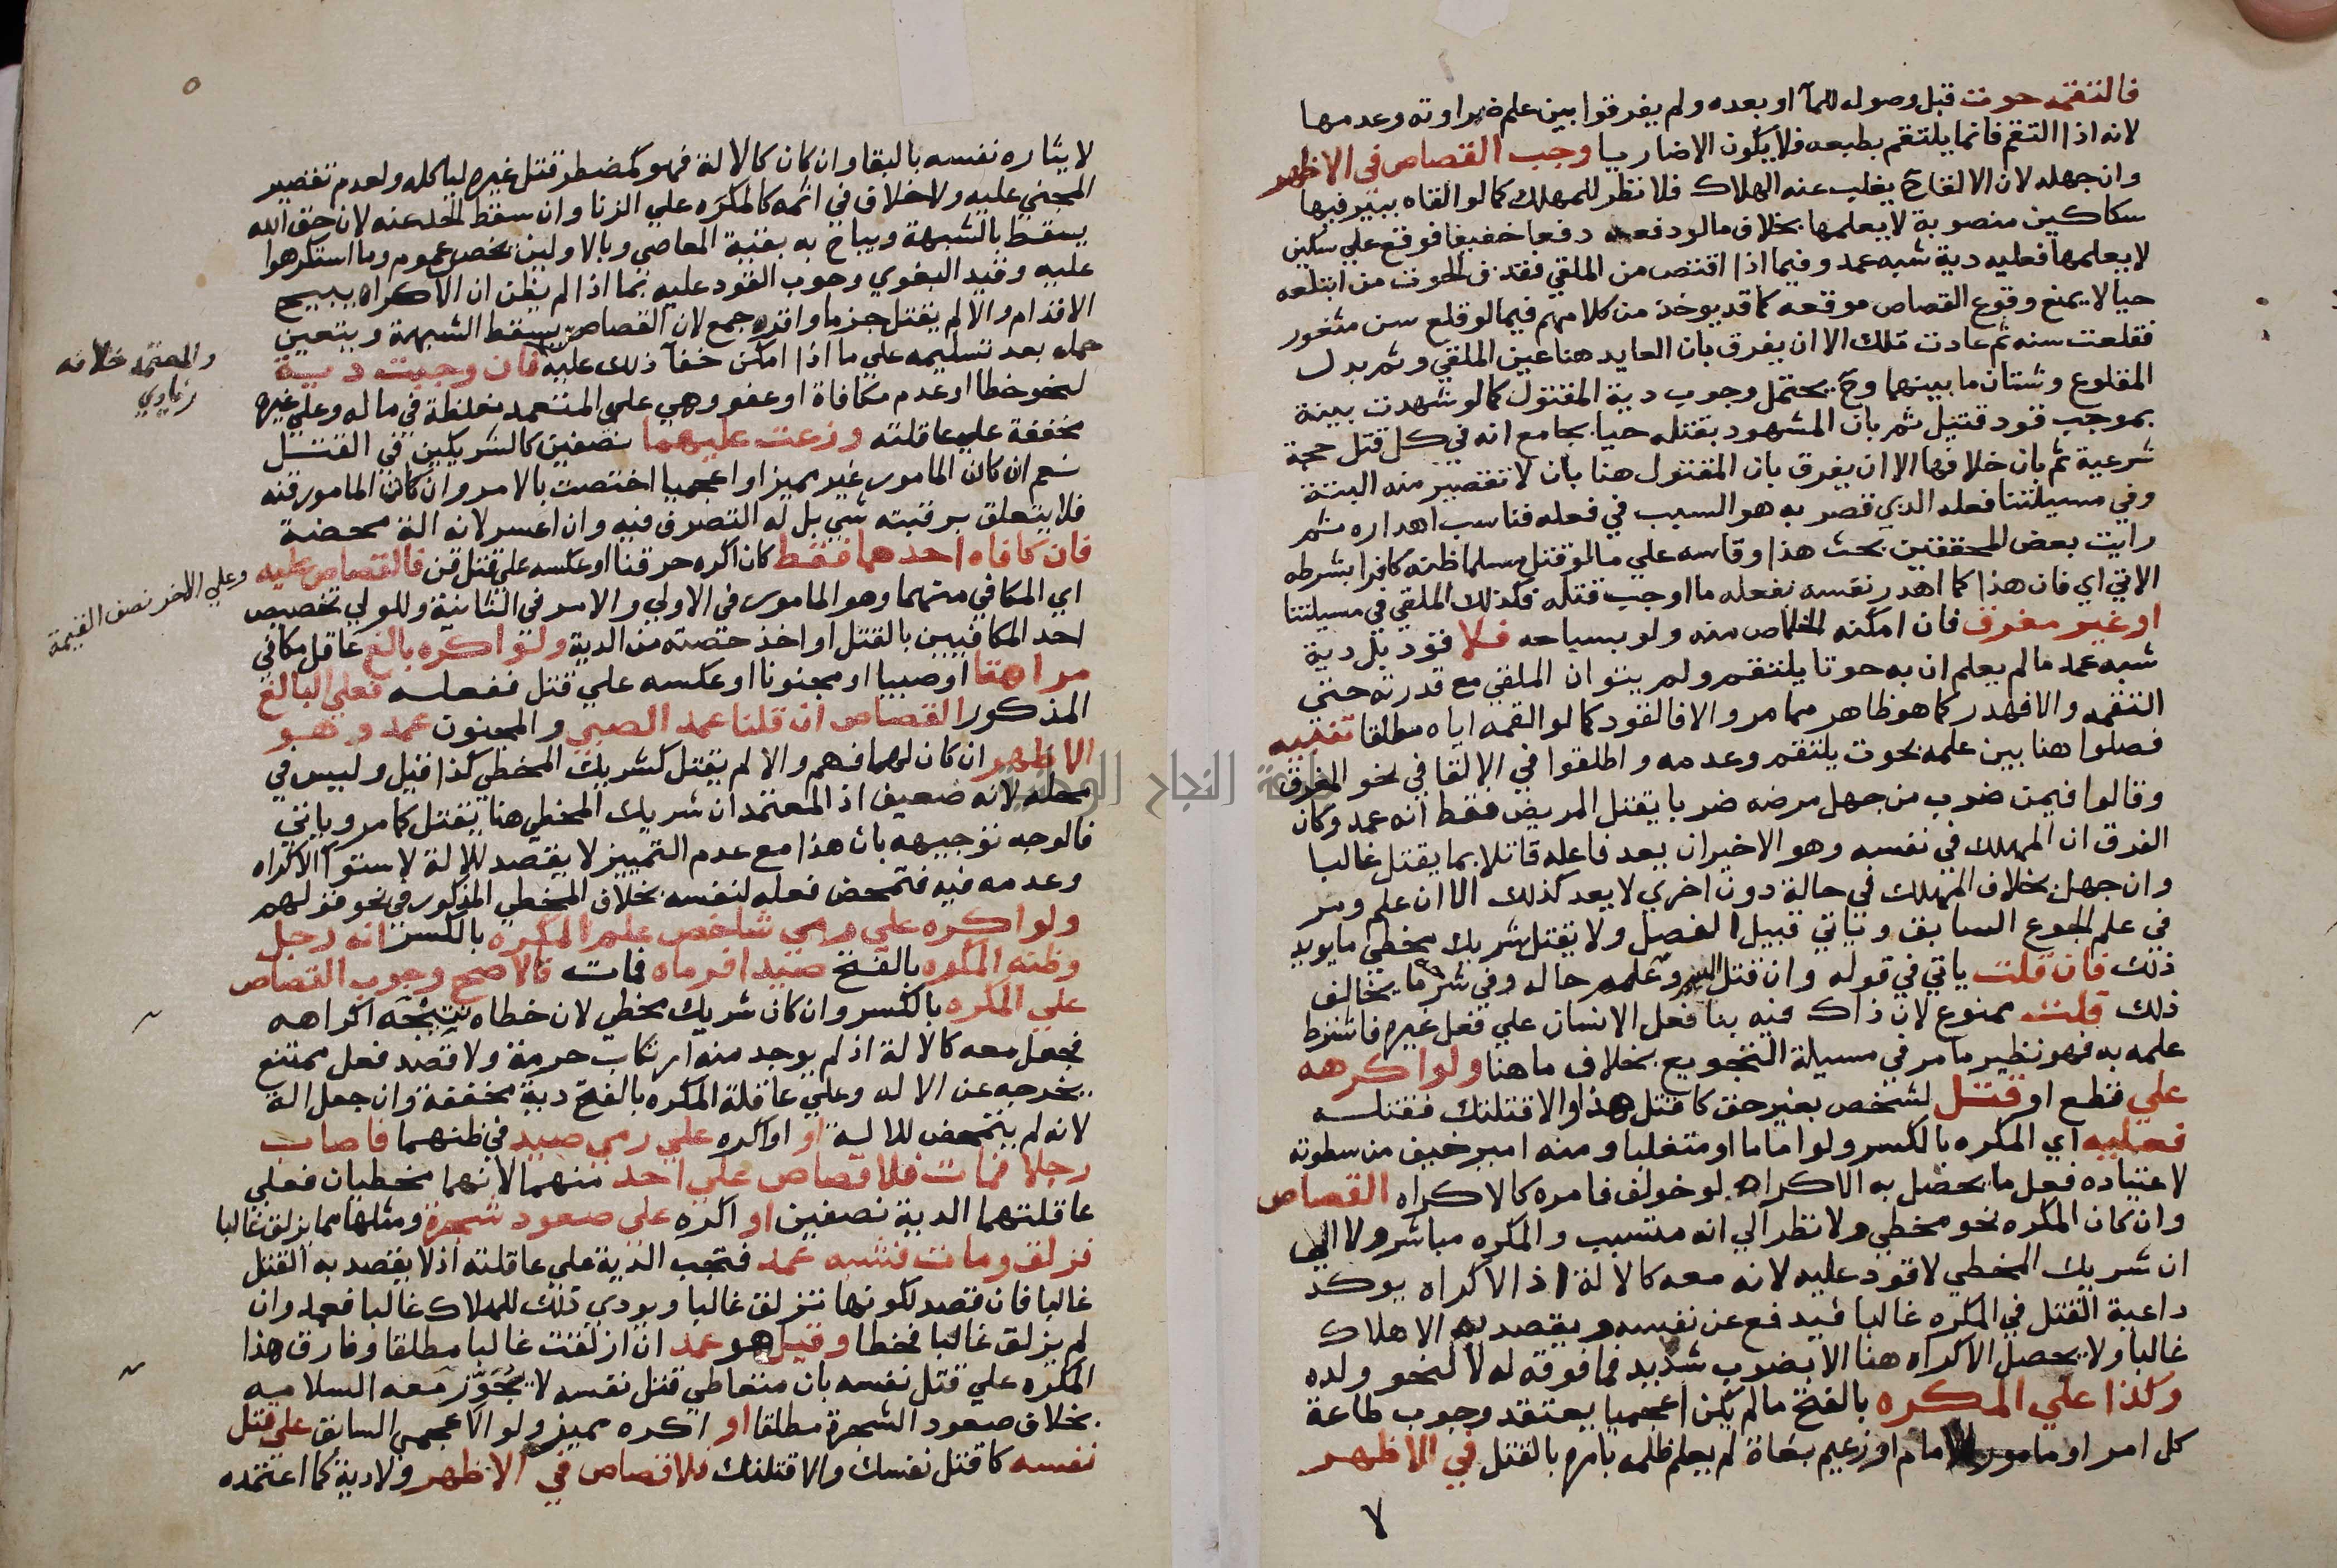 فالتقمه حوت قبل وصوله للمآ او بعده ولم يفرقوا بين علم ضراوته وعدمها
لانه اذا التقم فانما يلتقم بطبعه فلا يكون الا ضاريا وجب القصاص في الاظهر
وان جهله لان الالقاح يغلب عنه الهلاك فلا نظر للمهلك كما لو القاه ببير فيها
سكاكين منصوبة لا يعلمها بخلاف ما لو دفعه دفعا خفيفا فوقع علي سكين
لا يعلمها فعليه دية شبه عمد وفيما اذا اقتص من الملقي فقذف الحوت من ابتلعه
حيا لا يمنع وقوع القصاص موقعه كما قد يوخذ من كلامهم فيما لو قلع سن مثغور
فقلعت سنه ثم عادت تلك الا ان يفرق بان العايد هنا عين الملقي وثم بدل
المقلوع وشتان ما بينهما وح يحتمل وجوب دية المقتول كما لو شهدت بينة
بموجب قود فقتل ثم بان المشهود بقتله حيا بجامع انه في كل قتل حجة
شرعية ثم بان خلافها الا ان يفرق بان المقتول هنا بان لا تقصير منه البتة
وفي مسيلتنا فعله الذي قصر به هو السبب في فعله فناسب اهداره ثم
رايت بعض المحققين بحث هذا وقاسه علي ما لو قتل مسلما ظنه كافرا بشرطه
الاتي اي فان هذا كما اهدر نفسه بفعله ما اوجب قتله فكذلك الملقي في مسيلتنا
او غير مغرق فان امكنه الخلاص منه ولو بسباحه فلا قود بل دية
شبه عمد ما لم يعلم ان به حوتا يلتقم ولم يتوان الملقي مع قدرته حتي
التقمه والا فهدر كما هو ظاهر مما مر والا فالقود كما لو القمه اياه مطلقا تنبيه
فصلوا هنا بين علمه بحوت يلتقم وعدمه واطلقوا في الالقا في نحو المغرق
وقالوا فيمن ضرب من جهل مرضه ضربا يقتل المريض فقط انه عمد وكان
الفرق ان المهلك في نفسه وهو الاخيران يعد فاعله قاتلا بما يقتل غالبا
وان جهل بخلاف المهلك في حالة دون اخري لا يعد كذلك الا ان علم ومر
في علم الجوع السابق وياتي قبيل الفصل ولا يقتل شريك مخطي ما يويد
ذلك فان قلت ياتي في قوله وان قتل وعلم حاله وفي شرحه ما يخالف
ذلك قلت ممنوع لان ذاك فيه بنا فعل الانسان علي فعل غيره فاشترط
علمه به فهو نظير ما مر في مسيلة التجويع بخلاف ما هنا ولو اكرهه
علي قطع او قتل لشخص بغير حق كاقتل هذا والا قتلتك فقتله
فعليه اي المكره بالكسر ولو اماما او متغلبا ومنه امير خيف من سطوته
لاعتياده فعل ما يحصل به الاكراه لو خولف فامره كالاكراه القصاص
وان كان المكره نحو مخطي ولا نظر الي انه متسبب والمكره مباشر ولا الي
ان شريك المخطي لا قود عليه لانه معه كالالة اذ الاكراه يوكد
داعية القتل في المكره غالبا فيدفع عن نفسه ويقصد به الاهلاك
غالبا ولا يحصل الاكراه هنا الا بضرب شديد فما فوقه له لا لنحو ولده
وكذا علي المكره بالفتح ما لم يكن اعجميا يعتقد وجوب طاعة
كل امر او مامور الامام او زعيم بغاة لم يعلم ظلمه بامره بالقتل في الاظهر
لا
٥
لايثاره نفسه بالبقا وان كان كالالة فهو كمضطر قتل غيره لياكله ولعدم تقصير
المجني عليه ولا خلاف في اثمه كالمكره علي الزنا وان سقط الحد عنه لان حق الله
يسقط بالشبهة ويباح به بقية المعاصي وبالاولين يخص عموم وما استكرهوا
عليه وقيد البغوي وجوب القود عليه بما اذا لم يظن ان الاكراه يبيح
الاقدام والا لم يقتل جزما واقره جمع لان القصاص يسقط الشبهة ويتعين
حمله بعد تسليمه علي ما اذا امكن خفآ ذلك عليه فان وجبت دية
لنحو خطا او عدم مكافاة او عفو وهي علي المتعمد مغلظة في ماله وعلي غيره
مخففة علي عاقلته وزعت عليهما نصفين كالشريكين في القتل
نعم ان كان المامور غير مميز او اعجميا اختصت بالامر وان كان المامور قنه
فلا يتعلق برقبته شي بل له التصرف فيه وان اعسر لانه الة محضة
فان كافاه احدهما فقط كان اكره حر قنا او عكسه علي قتل قن فالقصاص عليه
اي المكافي منهما وهو المامور في الاولي والامر في الثانية وللولي تخصيص
احد المكافيين بالقتل او اخذ حصته من الدية ولو اكره بالغ عاقل مكافي
مراهقا او صبيا او مجنونا او عكسه علي قتل ففعله فعلي البالغ
المذكور القصاص ان قلنا عمد الصبي والمجنون عمد وهو
الاظهر ان كان لهما فهم والا لم يقتل كشريك المخطي كذا قيل وليس في
محله لانه ضعيف اذ المعتمد ان شريك المخطي هنا يقتل كما مر وياتي
فالوجه توجيهه بان هذا مع عدم التمييز لا يقصد للالة لاستوآ الاكراه
وعدمه فيه فتمحض فعله لنفسه بخلاف المخطي المذكور في نحو قولهم
ولو اكره علي رمي شاخص علم المكره بالكسر انه رجل
وظنه المكره بالفتح صيدا فرماه فمات فالاصح وجوب القصاص
علي المكره بالكسر وان كان شريك مخطي لان خطاه نتيجة اكراهه
فجعل معه كالالة اذ لم يوجد منه ارتكاب حرمة ولا قصد فعل ممتنع
يخرجه عن الالة وعلي عاقلة المكره بالفتح دية مخففة وان جعل الة
لانه لم يتمحض للالية او اكره علي رمي صيد في ظنهما فاصاب
رجلا فمات فلا قصاص علي احد منهما لانهما مخطيان فعلي
عاقلتهما الدية نصفين او اكره علي صعود شجرة ومثلها مما يزلق غالبا
فزلق ومات فشبه عمد فتجب الدية علي عاقلته اذ لا يقصد به القتل
غالبا فان قصد لكونها تزلق غالبا ويودي ذلك للهلاك غالبا فعمد وان
لم يزلق غالبا فخطا وقيل هو عمد ان ازلقت غالبا مطلقا وفارق هذا
المكره علي قتل نفسه بان متعاطي قتل نفسه لا يجوز معه السلامه
بخلاف صعود الشجرة مطلقا او اكره مميز ولو الاعجمي السابق علي قتل
نفسه كاقتل نفسك والا قتلتك فلا قصاص في الاظهر ولا دية كما اعتمده
والمعتمد خلافه
زيادي
وعلي الاخر نصف القيمة
جامعة النجاح الوطنية